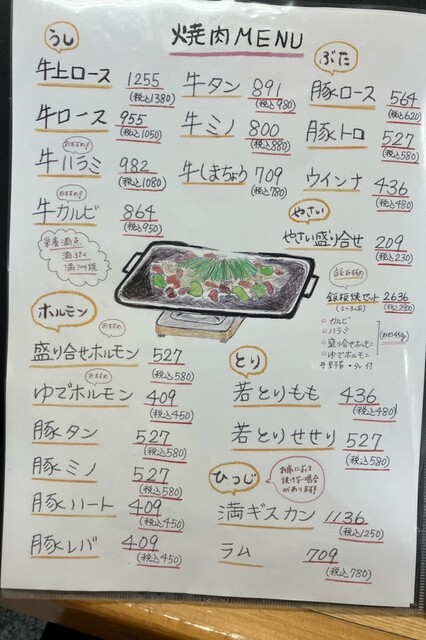 焼肉MENU
うし
牛上ロース 1255
(税込1380)
牛ロース 955
(税込1050)
おすすめ!
牛ハラミ 982
(税込1080)
おすすめ!
牛カルビ 864
(税込950)
栄養満点
満ぷく
満洲焼
牛タン 891
(税込980)
牛ミノ 800
(税込880)
牛しまちょう 709
(税込780)
ぶた
豚ロース 564
(税込620)
豚トロ 527
(税込580)
ウインナ 436
(税込480)
やさい
やさい盛り合せ 209
(税込230)
鉄板焼セット 2636
(2~3人前)
(税込2900)
○カルビ
○ハラミ
○盛り合せホルモン
○ゆでホルモン
ホルモン
おすすめ
盛り合せホルモン 527
(税込580)
おすすめ
ゆでホルモン 409
(税込450)
豚タン 527
(税込580)
豚ミノ 527
(税込580)
豚ハート 409
(税込450)
豚レバ 409
(税込450)
とり
若とりもも 436
(税込480)
若とりせせり 527
(税込580)
ひつじ
お席によって
焼けない場合
があります!
満ギスカン 1136
(税込1250)
ラム 709
(税込780)